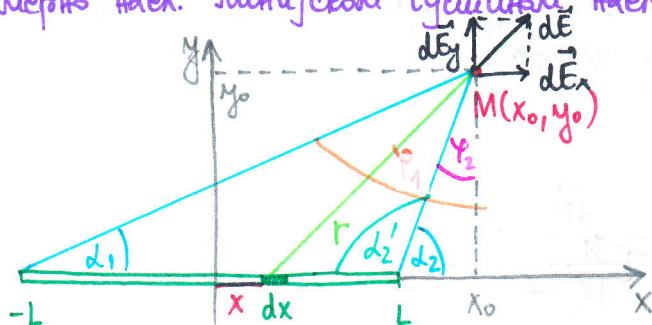 насл.
dE⃗y dE⃗
y
y₀
dE⃗ₓ
M(x₀, y₀)
φ₁ φ₂
r
α₁ α₂' α₂
-L x dx L x₀ x